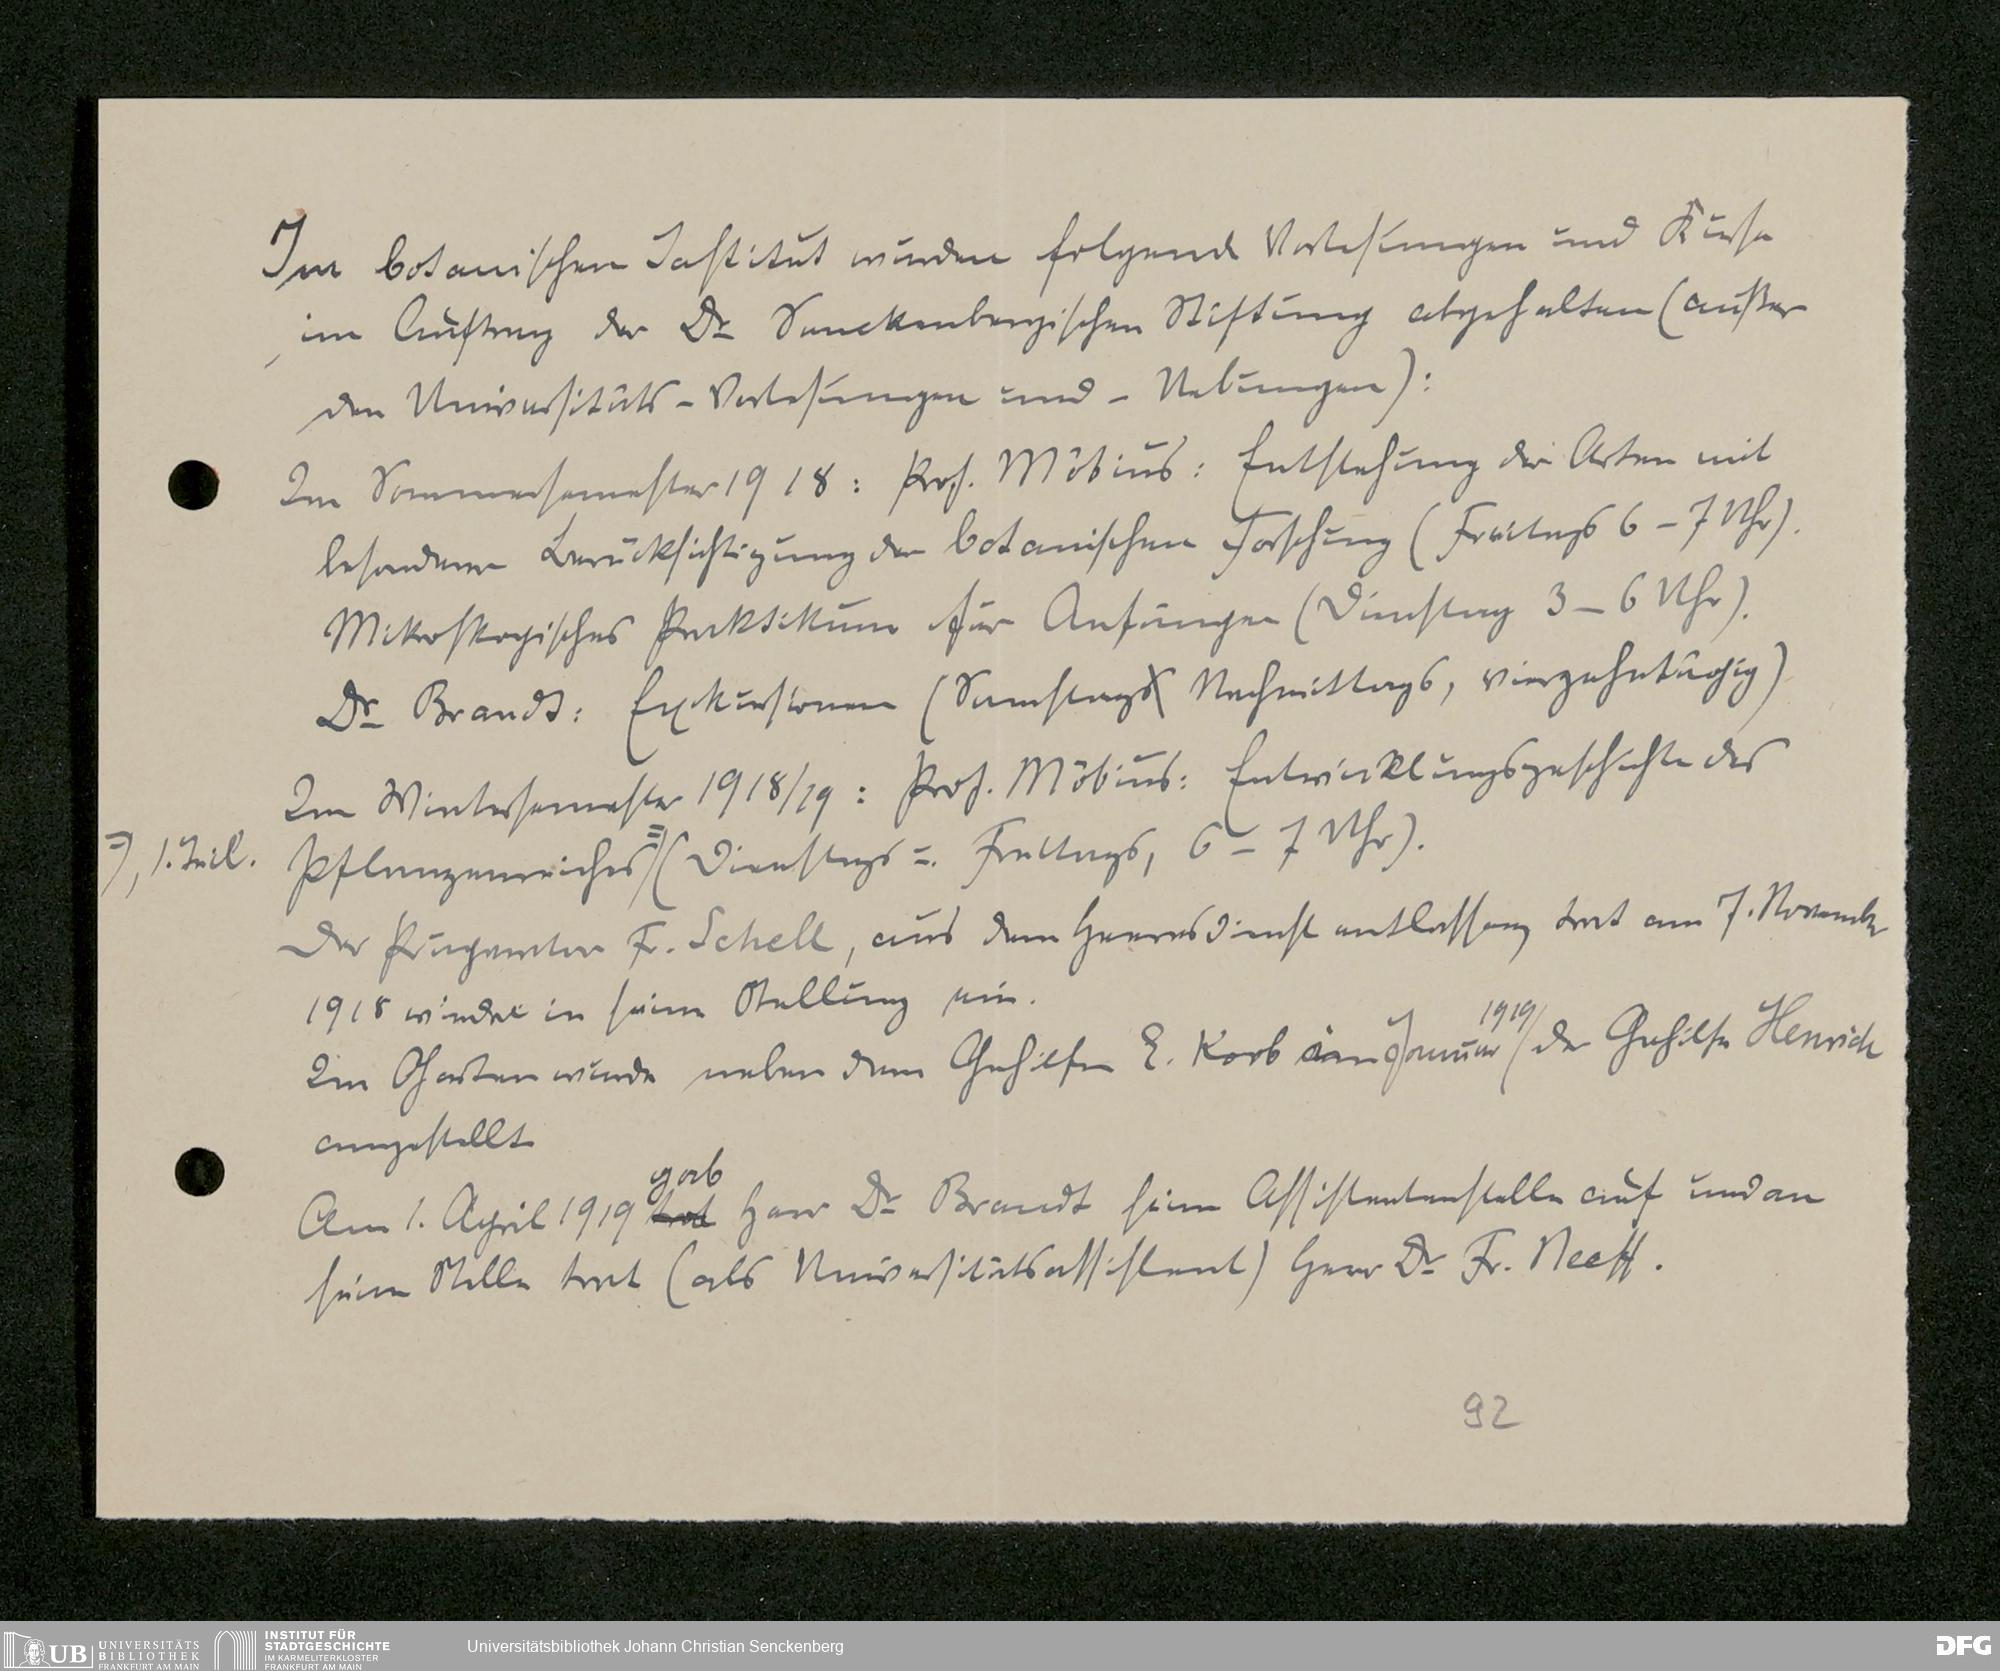 Im botanischen Institut wurden folgende Vorlesungen und Kurse
im Auftrag der Dr. Senckenbergischen Stiftung abgehalten (außer
den Universitäts-Vorlesungen und -Uebungen):
Im Sommersemester 1918: Prof. Möbius: Entstehung der Arten mit
besonderer Berücksichtigung der botanischen Forschung (Freitags 6-7 Uhr).
Mikroskopisches Praktikum für Anfänger (Dienstag 3-6 Uhr).
Dr. Brandt: Exkursionen (Samstags Nachmittags, vierzehntägig)
Im Wintersemester 1918/19: Prof. Möbius: Entwicklungsgeschichte des
=), 1. Teil.
Pflanzenreiches =) (Dienstags u. Freitags, 6-7 Uhr).
Der Präparator Fr. Schell, aus dem Heeresdienst entlassen, trat am 7. November
1918 wieder in seine Stellung ein.
Im Garten wurde neben dem Gehilfen E. Korb im Januar 1919 der Gehilfe Henrich
angestellt
gab
Am 1. April 1919 trat Herr Dr. Brandt seine Assistentenstelle auf und an
seine Stelle trat (als Universitätsassistent) Herr Dr. Fr. Neeff.
92
UB UNIVERSITÄTS
BIBLIOTHEK
FRANKFURT AM MAIN
INSTITUT FÜR
STADTGESCHICHTE
IM KARMELITERKLOSTER
FRANKFURT AM MAIN
Universitätsbibliothek Johann Christian Senckenberg
DFG